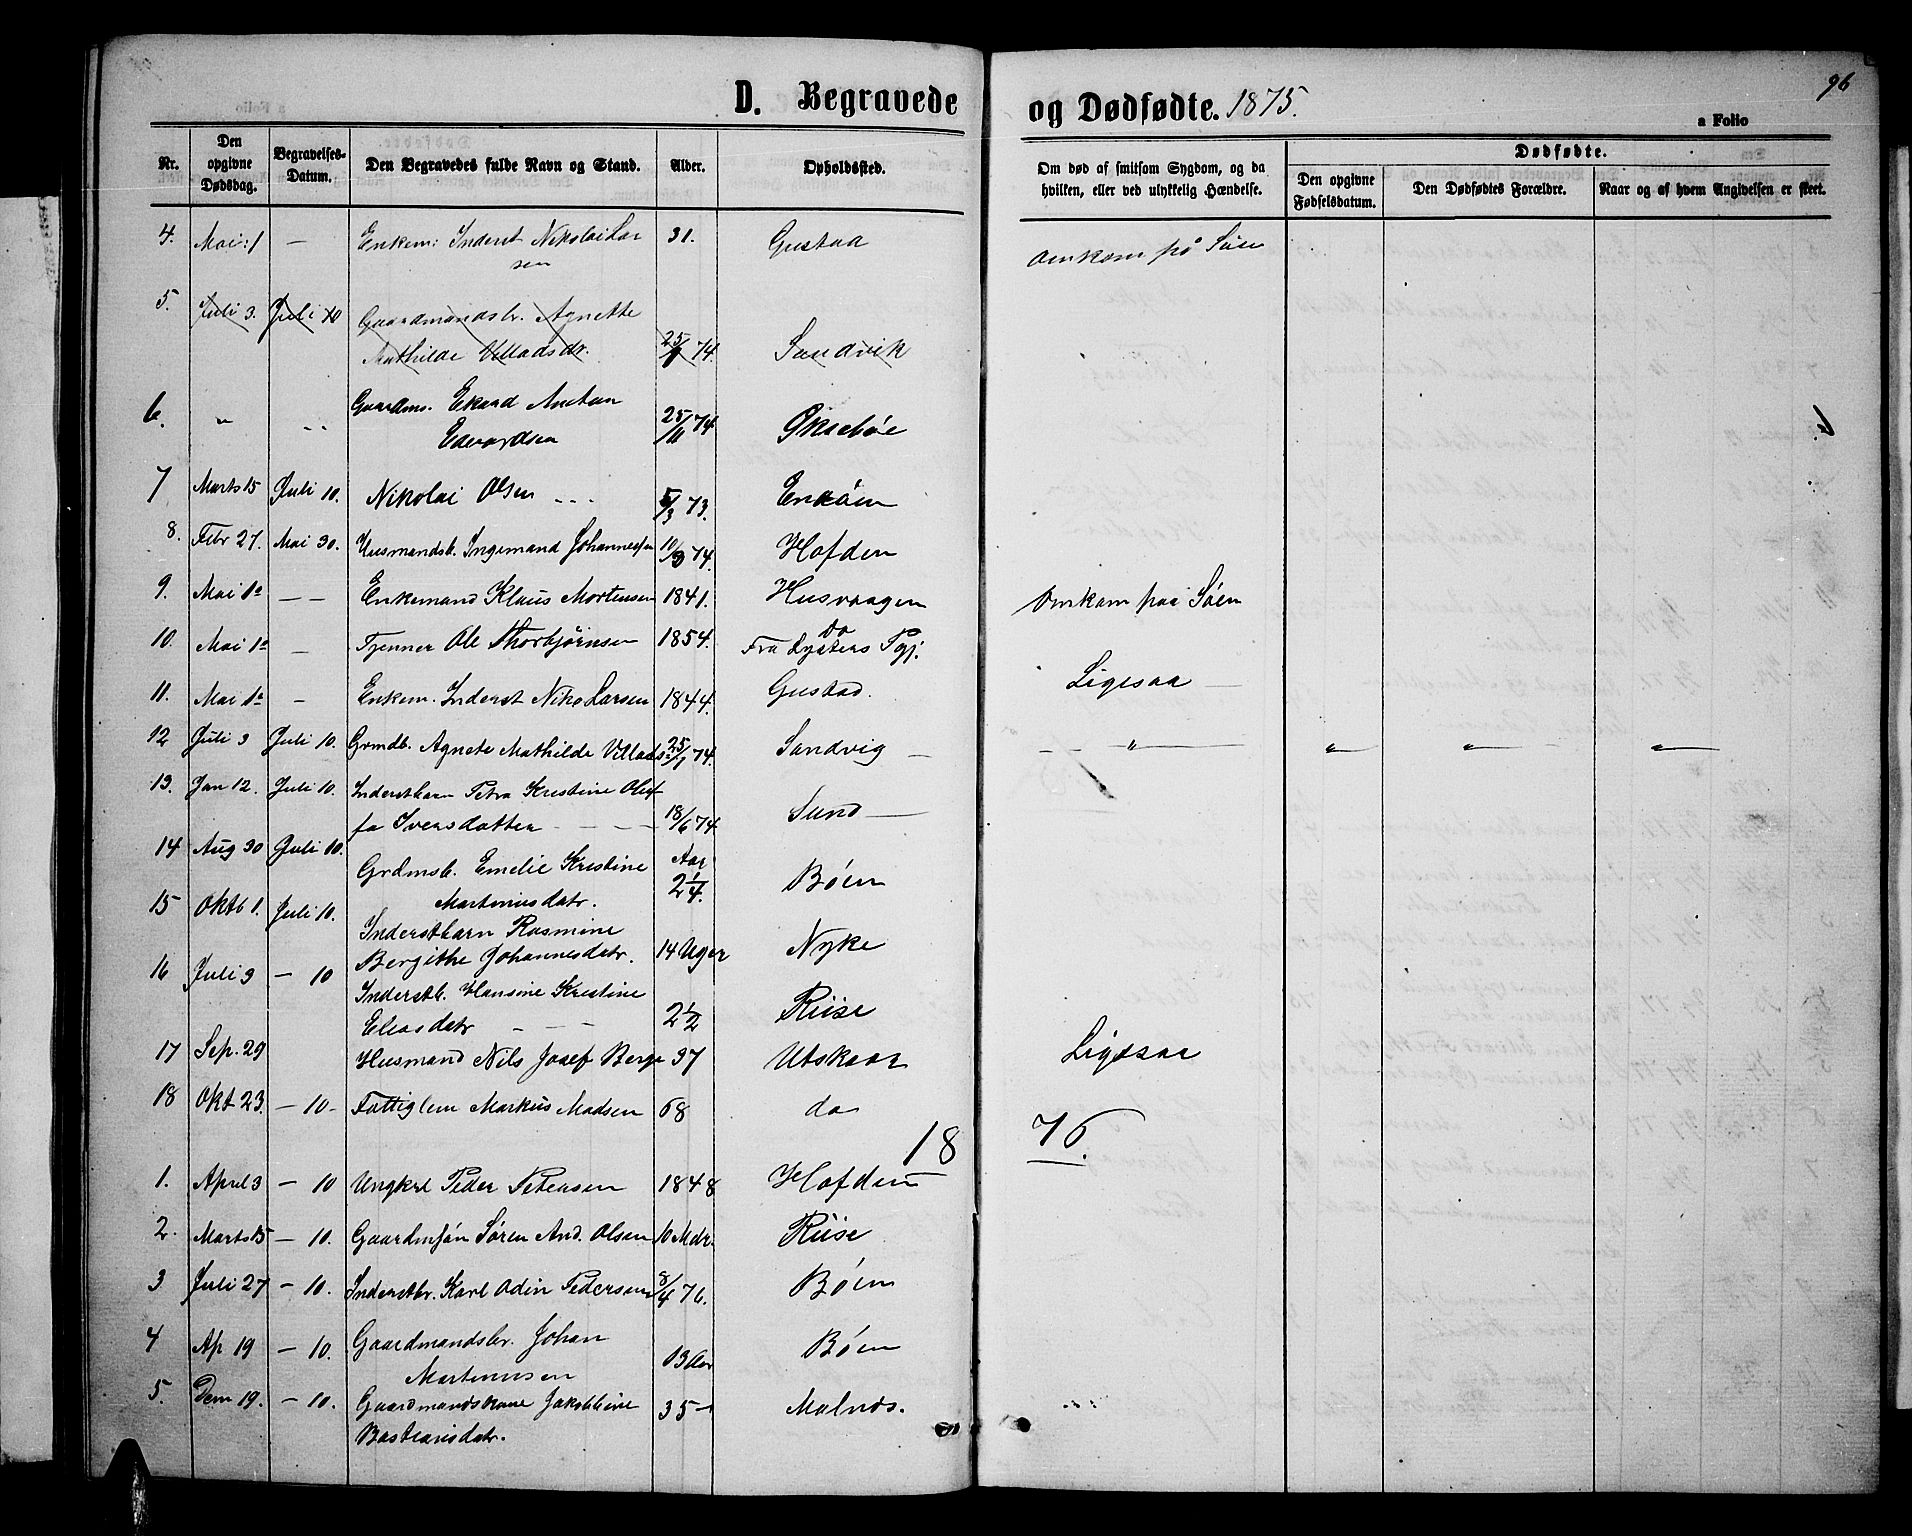 D. Begravede og Dødfødte. 1875.
96
a Folio
Nr. Den opgivne Dødsdag. Begravelses-Datum. Den Begravedes fulde Navn og Stand. Alder. Opholdssted. Om død af smitsom Sygdom, og da hvilken, eller ved ulykkelig Hændelse. Dødfødte.
Den opgivne Fødselsdatum. Den Dødfødtes Forældre. Naar og af hvem Angivelsen er skeet.
4. Mai 1 — Enkem: Inderst Nikolai Lar 31. Gustad omkom på Söen
sen
5. Juli 3. Juli 10 Gaardmandsbr. Agnette
Mathilde Villadsdr. 25/1 74. Sandvik
6. " " Gaardms. Ekard Anton
Edvardsen 25/11 74 Öksebøe
7 Marts 15 Juli 10. Nikolai Olsen 5/3 73. Endöen
8. Febr 27. Mai 30. Husmandsb. Ingemand Johannessen 10/3 74. Hofden
9. Mai 1a — — Enkemand Klaus Mortensen 1841. Husvaagen Omkom paa Söen
10. Mai 1a — Tjenner Ole Thorbjørnsen 1854. do
Fra Lysters Pgj. Ligesaa —
11. Mai 1a — Enkem. Inderst Niko Larsen 1844. Gustad.
12 Juli 3 Juli 10. Grmdb. Agnete Mathilde Villads 25/1 74. Sandvig — — " — " — " — " —
13. Jan 12. Juli 10. Inderstbarn Petra Kristine Oluf
fa Iversdatter — 18/6 74 Sund —
14 Aug 30 Juli 10. Grdmsb. Emelie Kristine Aar
Martinusdatr. 2 1/4. Bøen
15 Oktb 1. Juli 10. Inderstbarn Rasmine
Bergithe Johannesdatr. 14 Uger Nyke
16 Juli 3 — 10 Inderstb. Hansine Kristine
Eliasdatr — — 2 1/2 Riise
17 Sep. 29 Husmand Nils Josef Berge 37 Utskaar Ligesaa
18 Okt 23. — 10 — Fattiglem Markus Madsen 68 do
1876.
1. April 3 — 10 Ungkrl Peder Petersen 1848 Hofden
2. Marts 15 — 10. Gaardmsön Søren And. Olsen 10 Mdr. Riise
3 Juli 27 — 10. Inderstbr. Karl Odin Pedersen 8/4 76. Bøen
4 Ap 19 — 10. Gaardmandsbr. Johan
Martinusen 13 Aar Bøen
5. Dem 19. — 10. Gaardmandskone Jakobbine 35 — Malnes.
Bastiansdatr.